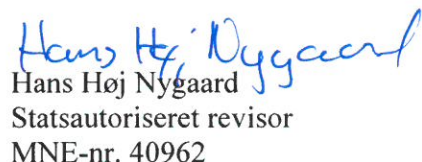 Hans Høj Nygaard
Hans Høj Nygaard
Statsautoriseret revisor
MNE-nr. 40962